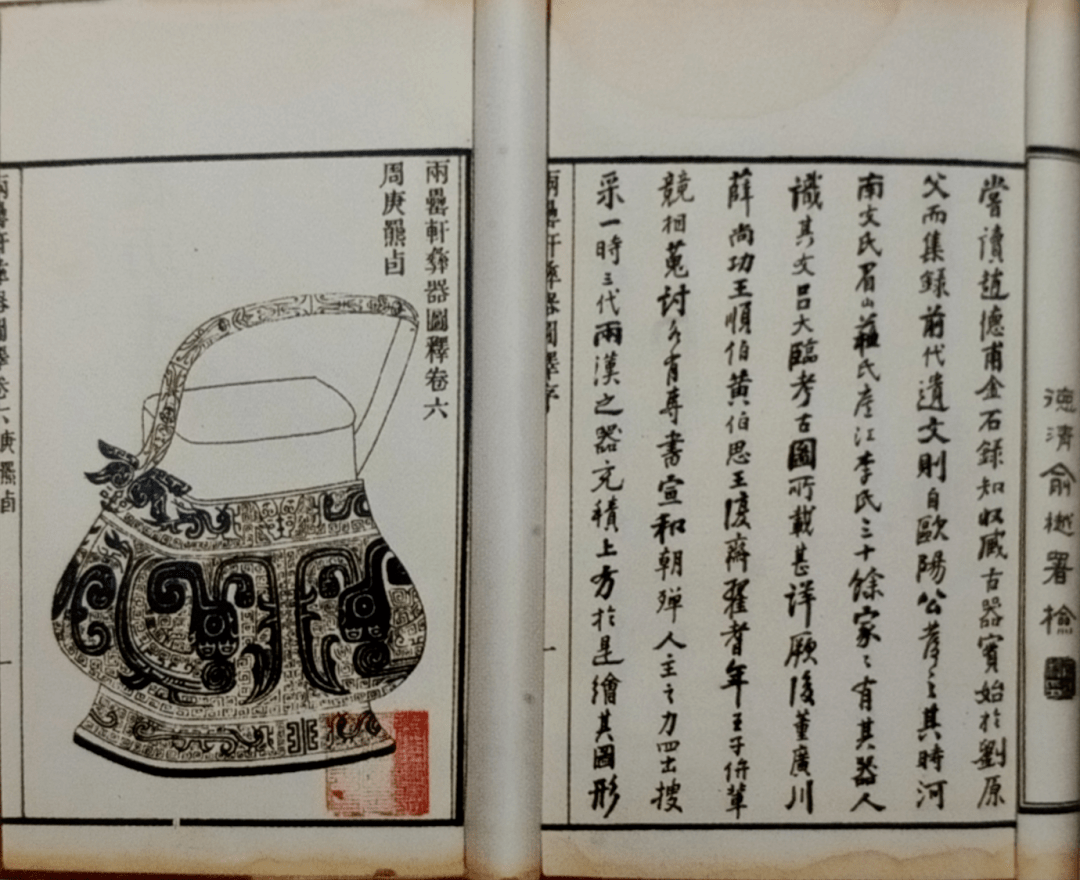 德清俞樾署檢
嘗讀趙德甫金石錄知收藏古器實始於劉原
父而集錄前代遺文則自歐陽公之其時河
南文氏眉山蘇氏廬江李氏三十餘家〻有其器人
識其文呂大臨考古圖所載甚詳厥後董廣川
薛尚功王順伯黃伯思王復齋翟耆年王子俅輩
競相蒐討各有專書宣和朝殫人主之力四出搜
采一時三代兩漢之器充積上方於是繪其圖形
兩罍軒彝器圖釋序 一
兩罍軒彝器圖釋卷六
周庚羆卣
兩罍軒彝器圖釋卷六 庚羆卣 一